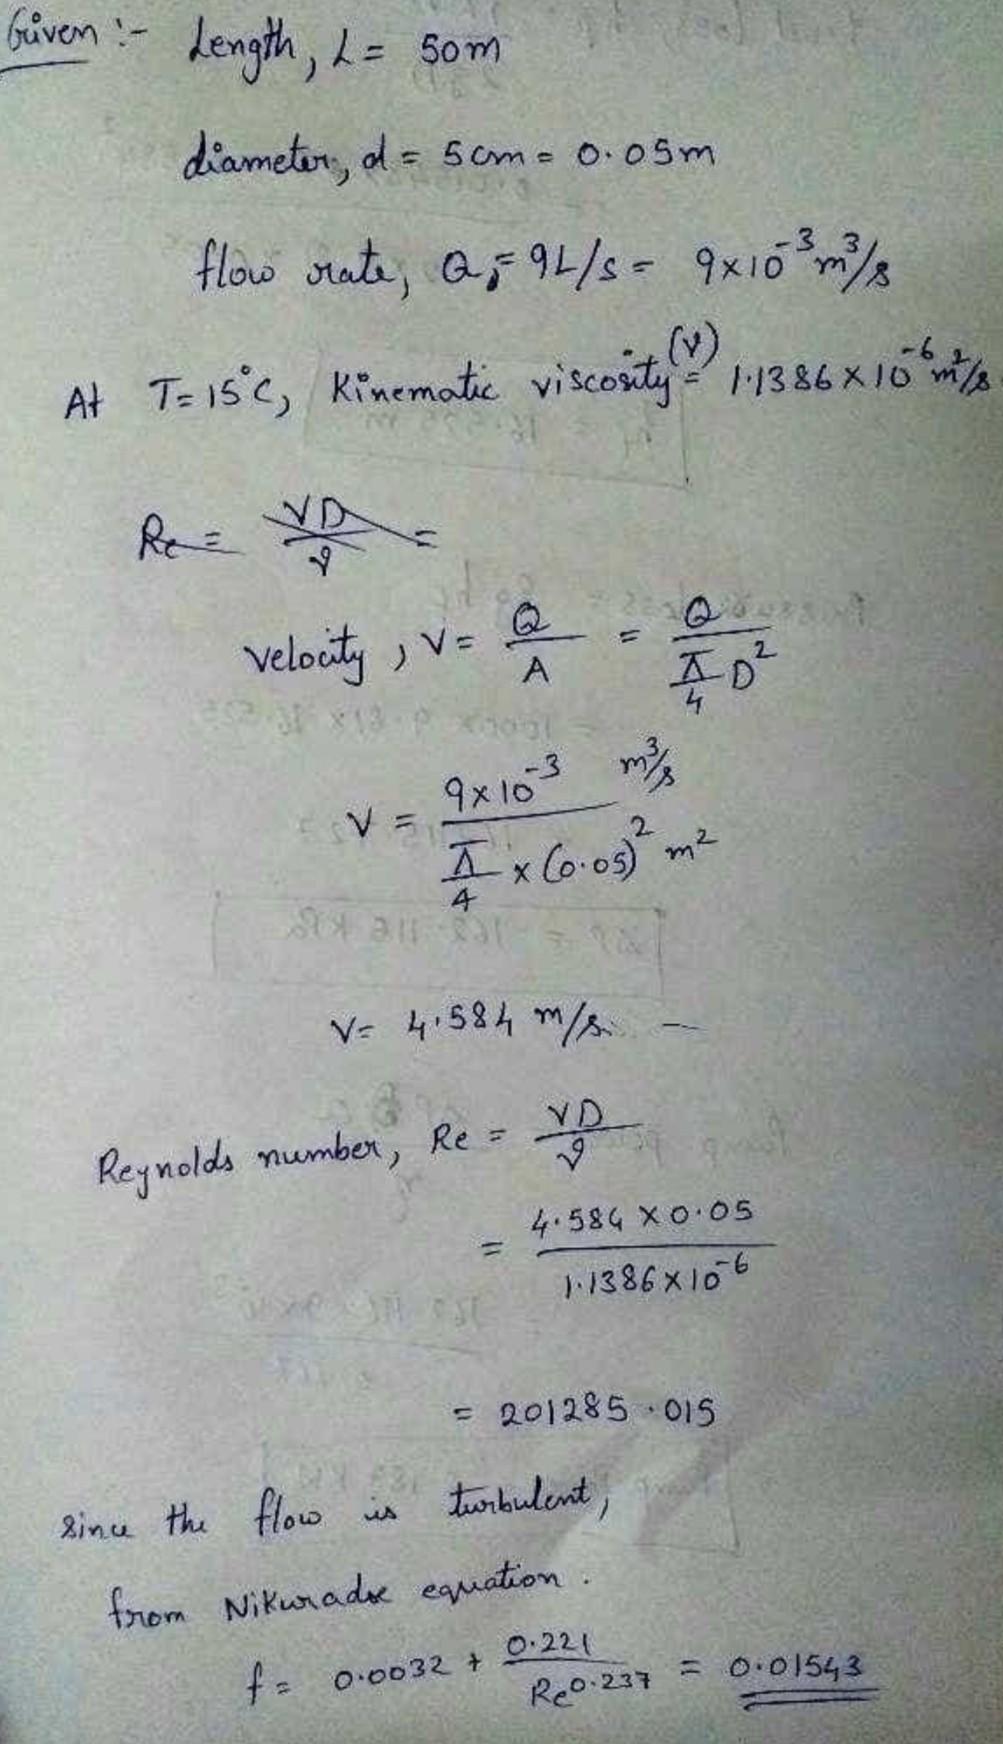 Given :- Length, L = 50m
diameter, d = 5cm = 0.05m
flow rate, Q, = 9L/s = 9×10⁻³ m³/s
At T=15°C, Kinematic viscosity (ν) = 1.1386 × 10⁻⁶ m²/s
Re = VD/ν =
velocity, V = Q/A = Q/(π/4 D²)
V = 9×10⁻³ m³/s / (π/4 × (0.05)² m²)
V = 4.584 m/s. —
Reynolds number, Re = VD/ν
= 4.584 × 0.05 / 1.1386×10⁻⁶
= 201285.015
since the flow is turbulent,
from Nikuradse equation.
f = 0.0032 + 0.221/Re^0.237 = 0.01543